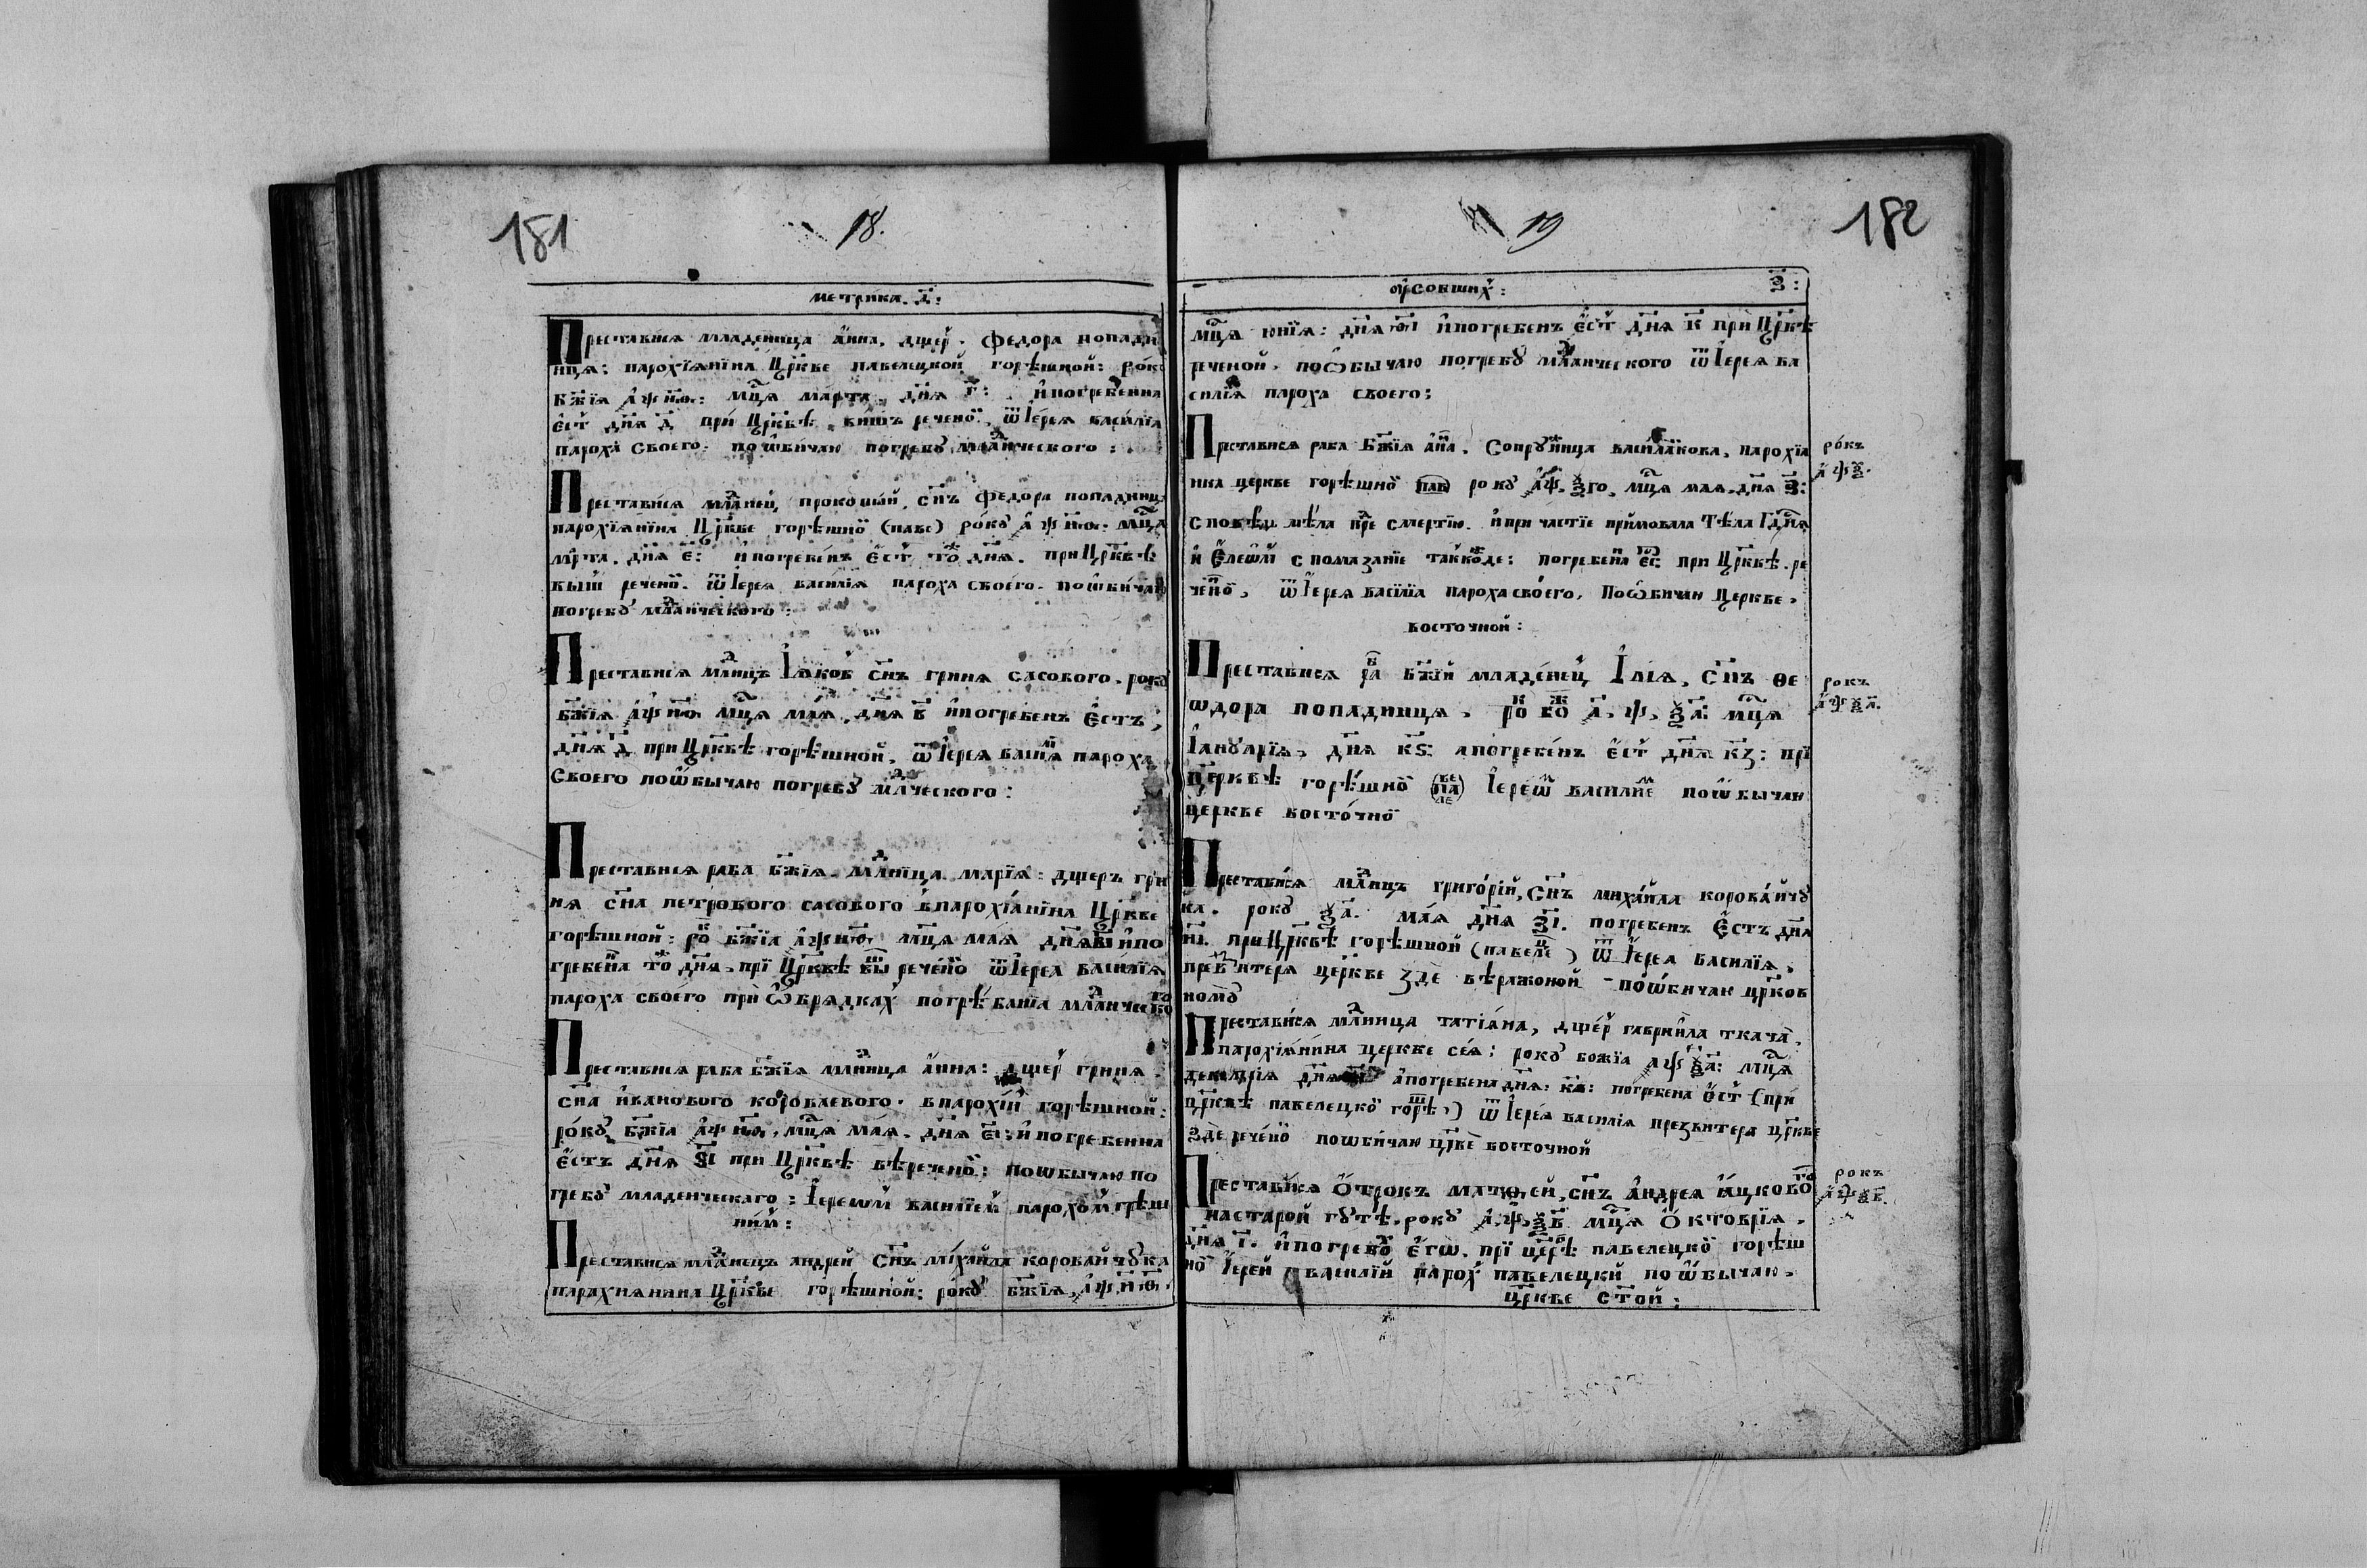 181
18.
метрика. д҃:
Преставися младеница а́нна, дщер҆. федора попадин
иця: парохїянина Цр҃кве павелецкой горѣшной: ро́кꙋ
Бж҃їя ҂аѱн҃ѳ: мц҃а марта, дн҃я г҃: и҆погребенна
є҆ст҆ дн҃я д҃ при́ Цр҃квѣ вишъ реченӧ, ѿ Іере́я васи́лїа
пароха̀ своего. поѡ҆бичаю погребꙋ млⷣаническогѡ:
Преставися млⷣанец прокопий, сн҃ъ федора попадиниц
парохїянина Цр҃кве горѣшнӧ (паве) ро́кꙋ ҂аѱн҃ѳ. мц҃а
мр҃та. дн҃я є҃: и҆погребенъ є҆ст҆ тоⷢ҇ дн҃я. при Цр҃квѣ
выш реченӧ. ѿ Іерея василїя пароха своего. поѡ҆бичаю
погребꙋ млⷣанического:
Преставися млⷣнцъ Іяков сн҃ъ гриня сасового. рокꙋ
бж҃їя ҂аѱн҃ѳ мц҃я мая, дн҃я в҃ и҆погребенъ є҆стъ,
дн҃я д҃ при Цр҃квѣ горѣшной, ѿ Іерея васи́лїя пароха
Своего поѡ҆бычаю погребꙋ млⷣческого:
Преставися раба бж҃їя. млⷣница марїя: дщеръ гри
ня сн҃а петрового сасового впарохі́анїна Цр҃кве
горѣшной: роⷦ҇ бж҃їа ҂аѱн҃ѳ мц҃я мая дн҃я и҆по
гребенна тоⷢ҇ дн҃я. прї Цр҃квѣ выⷲ реченӧ ѿ Іерея васи́лїя
пароха своего при ѡ҆брядках погрѣбанїа млⷣаническоⷢ҇
Преставися раба бж҃їя млⷣница а́нна: дщер҆ гриня.
сн҃а и҆ванового короваевого. впарохїй горѣшной:
ро́кꙋ бж҃їа ҂аѱн҃ѳ, мц҃я мая. дн҃я єі҃: и҆погребенна
є҆стъ дн҃я ѕі҃ при Цр҃квѣ вѣреченӧ: поѡбычаю по
гребꙋ младенческаго: Іереѡм василїем парохом грѣш
ним:
Преставися млⷣанецъ андрей сн҃ъ міхайла коровайчꙋка
парахиянина Цр҃кве горѣшной: року бж҃їя, ҂аѱн҃ѳ.
19
182
ѹ҆совших: з҃:
мц҃я юнїя: дн҃я ѳі҃ и҆погребенъ є҆ст҆ дн҃я к҃ при Цр҃квѣ
реченой. поѡбычаю погребꙋ млⷣанического ѿ Іерея ва
силїа пароха своего:
Прставися раба Бж҃їя а҆нⷩа. Сопрꙋжница васи́лакова, парохїа
нка церкве горѣшнӧ пав рокꙋ ҂аѱ, ѯ҃го, мц҃я мая. дн҃я з҃:
сповѣдь мѣла пре смертїю. и҆причастїе приймовала Тѣла Гдⷭня
и Єлеѡм спомазанїе такожде: погребена єⷭ҇ при Цр҃квѣ. ре
ченӧ, ѿ Іерея васїлїа пароха своего, Поѡбичаю Церкве,
восточной:
рокъ
҂аѱѯ҃.
Преставися раⷠ бж҃їй младе́нец Ілія, сн҃ъ ѳе
ѡдора попадиниця. роⷦ҇ боⷤ ҂а, ѱ, ѯ҃а: мц҃я
Іанꙋарїя, дн҃я кѕ҃: а погребе́нъ є҆ст҆ дн҃я кз҃: прї
церквѣ горѣшнӧ Іереѡⷨ василиеⷨ поѡ҆бычаю
церкве восто́чнӧ
рокъ
҂аѱѯ҃а.
Преставися млⷣнцъ григо́рій, сн҃ъ миха́йла корова́йчꙋ
ка. рокꙋ ѯ҃а. мая дн҃я зі҃. погребенъ є҆стъ дн҃я
иі҃. при Цр҃квѣ горѣшной (павелеⷰ) ѿ Іерея василїя,
превⷥитера церкве здѐ вѣражоной поѡ҆бичаю цр҃ков
номꙋ
Преставися млⷣнница татіа́на, дще́р҆ гавриила ткача̀.
парохія́нина церкве сея́: рокꙋ божїа ҂аѱѯ҃а: мц҃я
декемрїя дн҃я а҆погребена дн҃я: к҃а: погребена є҆ст҆ (при
цр҃квѣ павелецкӧ гоⷲрѣ,) ѿ Іерея василія презвитера цр҃кве
здѐ реченӧ поѡби́чаю цр҃квѐ восточной
Преставися Ѻтрокъ матѳей, сн҃ъ А҆ндрея я҆цковоⷢ҇
на старой гꙋтѣ, рокꙋ ҂а,ѱ,ѯ҃в мц҃я Ѻктоврїя.
дн҃я г҃. и҆погребоⷯ є҆гѡ. прї церкⷡѣ павелецкӧ горѣш
нӧ Іерей василїй парох павелецкй поѡ҆бычаю.
цр҃кве с҃той:
рокъ
҂аѱѯ҃в.